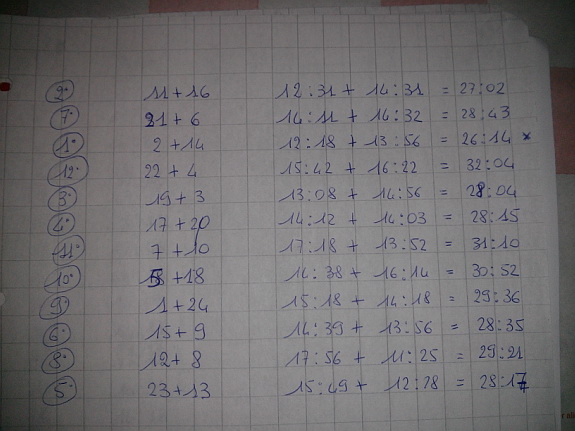 2° 11+16 12:31 + 14:31 = 27:02
7° 21+6 14:11 + 14:32 = 28:43
1° 2+14 12:18 + 13:56 = 26:14 *
12° 22+4 15:42 + 16:22 = 32:04
3° 19+3 13:08 + 14:56 = 28:04
4° 17+20 14:12 + 14:03 = 28:15
11° 7+10 17:18 + 13:52 = 31:10
10° +18 14:38 + 16:14 = 30:52
9° 1+24 15:18 + 14:18 = 29:36
6° 15+9 14:39 + 13:56 = 28:35
8° 12+8 17:56 + 11:25 = 29:21
5° 23+13 15:49 + 12:28 = 28:17